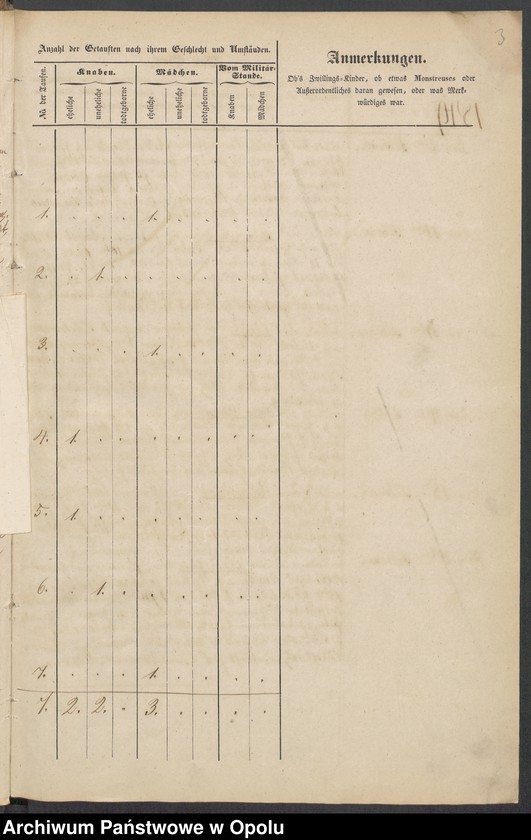 3
Anzahl der Getauften nach ihrem Geschlecht und Umständen.
Anmerkungen.
Ob's Zwillings-Kinder, ob etwas Monstroses oder
Außerordentliches daran gewesen, oder was Merk-
würdiges war.
№ der Taufen.
Knaben.
Mädchen.
Vom Militär-
Stande.
eheliche
uneheliche
todtgeborne
eheliche
uneheliche
todtgeborne
Knaben
Mädchen
1. . . . 1. . . . .
2. . 1. . . . . . .
3. . . . 1. . . . .
4. 1. . . . . . . .
5. 1. . . . . . . .
6. . 1. . . . . . .
7. . . . 1. . . . .
7. 2. 2. . 3. . . . .
Archiwum Państwowe w Opolu